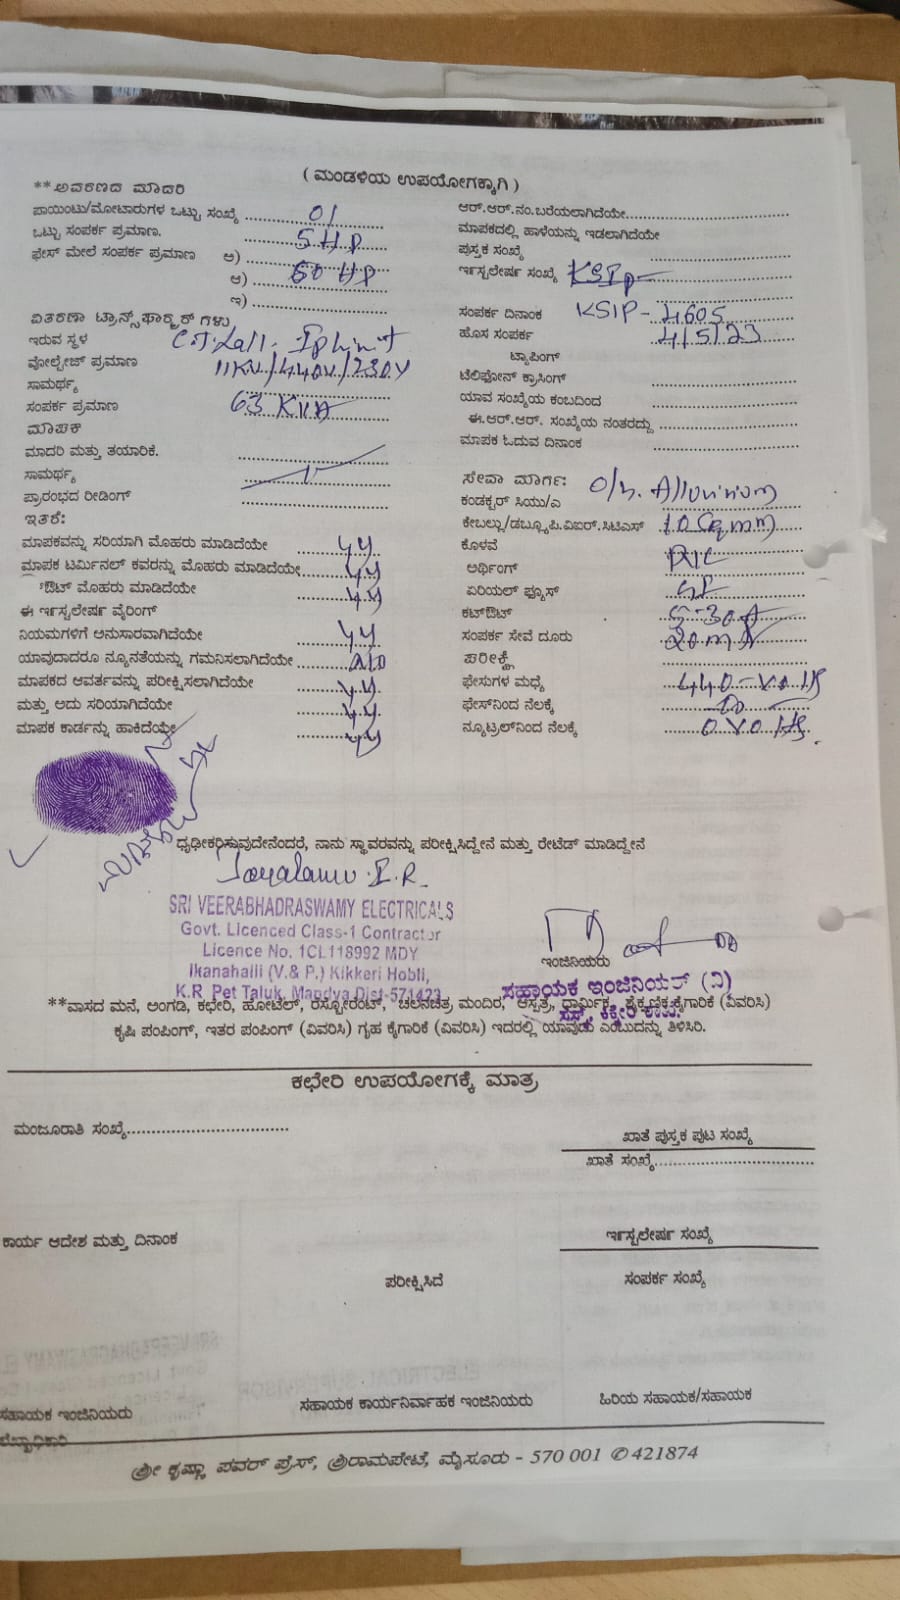 ( ಮಂಡಳಿಯ ಉಪಯೋಗಕ್ಕಾಗಿ )
**ಆವರಣದ ಮಾದರಿ
ಪಾಯಿಂಟು/ಮೋಟಾರುಗಳ ಒಟ್ಟು ಸಂಖ್ಯೆ 01
ಒಟ್ಟು ಸಂಪರ್ಕ ಪ್ರಮಾಣ. 5 HP
ಫೇಸ್ ಮೇಲೆ ಸಂಪರ್ಕ ಪ್ರಮಾಣ ಅ)
ಆ) 60 HP
ಇ)
ವಿತರಣಾ ಟ್ರಾನ್ಸ್‌ಫಾರ್ಮರ್ ಗಳು
ಇರುವ ಸ್ಥಳ
ವೋಲ್ಟೇಜ್ ಪ್ರಮಾಣ 11KV/440V/230V
ಸಾಮರ್ಥ್ಯ
ಸಂಪರ್ಕ ಪ್ರಮಾಣ 63 KVA
ಮಾಪಕ
ಮಾದರಿ ಮತ್ತು ತಯಾರಿಕೆ.
ಸಾಮರ್ಥ್ಯ
ಪ್ರಾರಂಭದ ರೀಡಿಂಗ್
ಇತರೆ:
ಮಾಪಕವನ್ನು ಸರಿಯಾಗಿ ಮೊಹರು ಮಾಡಿದೆಯೇ
ಮಾಪಕ ಟರ್ಮಿನಲ್ ಕವರನ್ನು ಮೊಹರು ಮಾಡಿದೆಯೇ
ಔಟ್ ಮೊಹರು ಮಾಡಿದೆಯೇ
ಈ ಇನ್‌ಸ್ಟಲೇಷನ್ ವೈರಿಂಗ್
ನಿಯಮಗಳಿಗೆ ಅನುಸಾರವಾಗಿದೆಯೇ
ಯಾವುದಾದರೂ ನ್ಯೂನತೆಯನ್ನು ಗಮನಿಸಲಾಗಿದೆಯೇ
ಮಾಪಕದ ಆವರ್ತವನ್ನು ಪರೀಕ್ಷಿಸಲಾಗಿದೆಯೇ
ಮತ್ತು ಅದು ಸರಿಯಾಗಿದೆಯೇ
ಮಾಪಕ ಕಾರ್ಡನ್ನು ಹಾಕಿದೆಯೇ
ಆರ್.ಆರ್.ನಂ.ಬರೆಯಲಾಗಿದೆಯೇ
ಮಾಪಕದಲ್ಲಿ ಹಾಳೆಯನ್ನು ಇಡಲಾಗಿದೆಯೇ
ಪುಸ್ತಕ ಸಂಖ್ಯೆ
ಇನ್‌ಸ್ಟಲೇಷನ್ ಸಂಖ್ಯೆ KSIP
ಸಂಪರ್ಕ ದಿನಾಂಕ KSIP - 4605
ಹೊಸ ಸಂಪರ್ಕ 4/5/23
ಟ್ಯಾಪಿಂಗ್
ಟೆಲಿಫೋನ್ ಕ್ರಾಸಿಂಗ್
ಯಾವ ಸಂಖ್ಯೆಯ ಕಂಬದಿಂದ
ಈ.ಆರ್.ಆರ್. ಸಂಖ್ಯೆಯ ನಂತರದ್ದು
ಮಾಪಕ ಓದುವ ದಿನಾಂಕ
ಸೇವಾ ಮಾರ್ಗ:
ಕಂಡಕ್ಟರ್ ಸಿಯು/ಎ
ಕೇಬಲ್ಲು/ಡಬ್ಲ್ಯೂ.ಪಿ.ವಿಐಆರ್.ಸಿಟಿಎಸ್ 10 Sqmm
ಕೊಳವೆ
ಅರ್ಥಿಂಗ್
ಏರಿಯಲ್ ಫ್ಯೂಸ್
ಕಟ್‌ಔಟ್
ಸಂಪರ್ಕ ಸೇವೆ ದೂರು
ಪರೀಕ್ಷೆ
ಫೇಸುಗಳ ಮಧ್ಯೆ 440 - Volts
ಫೇಸ್‌ನಿಂದ ನೆಲಕ್ಕೆ
ನ್ಯೂಟ್ರಲ್‌ನಿಂದ ನೆಲಕ್ಕೆ 0 Volts
ಧೃಢೀಕರಿಸುವುದೇನೆಂದರೆ, ನಾನು ಸ್ಥಾವರವನ್ನು ಪರೀಕ್ಷಿಸಿದ್ದೇನೆ ಮತ್ತು ರೇಟೆಡ್ ಮಾಡಿದ್ದೇನೆ
SRI VEERABHADRASWAMY ELECTRICALS
Govt. Licenced Class-1 Contractor
Licence No. 1CL118992 MDY
Ikanahalli (V.& P.) Kikkeri Hobli,
K.R. Pet Taluk, Mandya Dist-571423
ಇಂಜಿನಿಯರು
ಸಹಾಯಕ ಇಂಜಿನಿಯರ್ (ವಿ)
**ವಾಸದ ಮನೆ, ಅಂಗಡಿ, ಕಛೇರಿ, ಹೋಟೆಲ್, ರೆಸ್ಟೋರೆಂಟ್, ಚಲನಚಿತ್ರ ಮಂದಿರ, ಆಸ್ಪತ್ರೆ, ಧಾರ್ಮಿಕ, ಶೈಕ್ಷಣಿಕ ಕೈಗಾರಿಕೆ (ವಿವರಿಸಿ)
ಕೃಷಿ ಪಂಪಿಂಗ್, ಇತರ ಪಂಪಿಂಗ್ (ವಿವರಿಸಿ) ಗೃಹ ಕೈಗಾರಿಕೆ (ವಿವರಿಸಿ) ಇದರಲ್ಲಿ ಯಾವುದು ಎಂಬುದನ್ನು ತಿಳಿಸಿರಿ.
ಕಛೇರಿ ಉಪಯೋಗಕ್ಕೆ ಮಾತ್ರ
ಮಂಜೂರಾತಿ ಸಂಖ್ಯೆ
ಖಾತೆ ಪುಸ್ತಕ ಪುಟ ಸಂಖ್ಯೆ
ಖಾತೆ ಸಂಖ್ಯೆ
ಕಾರ್ಯ ಆದೇಶ ಮತ್ತು ದಿನಾಂಕ
ಇನ್‌ಸ್ಟಲೇಷನ್ ಸಂಖ್ಯೆ
ಪರೀಕ್ಷಿಸಿದೆ
ಸಂಪರ್ಕ ಸಂಖ್ಯೆ
ಸಹಾಯಕ ಇಂಜಿನಿಯರು
ಸಹಾಯಕ ಕಾರ್ಯನಿರ್ವಾಹಕ ಇಂಜಿನಿಯರು
ಹಿರಿಯ ಸಹಾಯಕ/ಸಹಾಯಕ
ಶ್ರೀ ಕೃಷ್ಣಾ ಪವರ್ ಪ್ರೆಸ್, ಶ್ರೀರಾಮಪೇಟೆ, ಮೈಸೂರು - 570 001 ✆ 421874